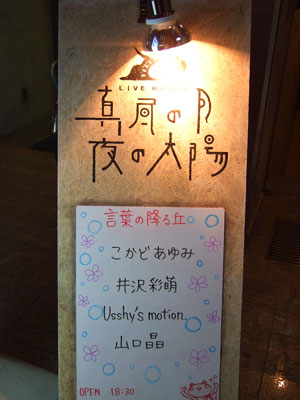 LIVE HOUSE
真昼の月
夜の太陽
言葉の降る丘
こかどあゆみ
井沢彩萌
Usshy's motion.
山口晶
OPEN 18:30